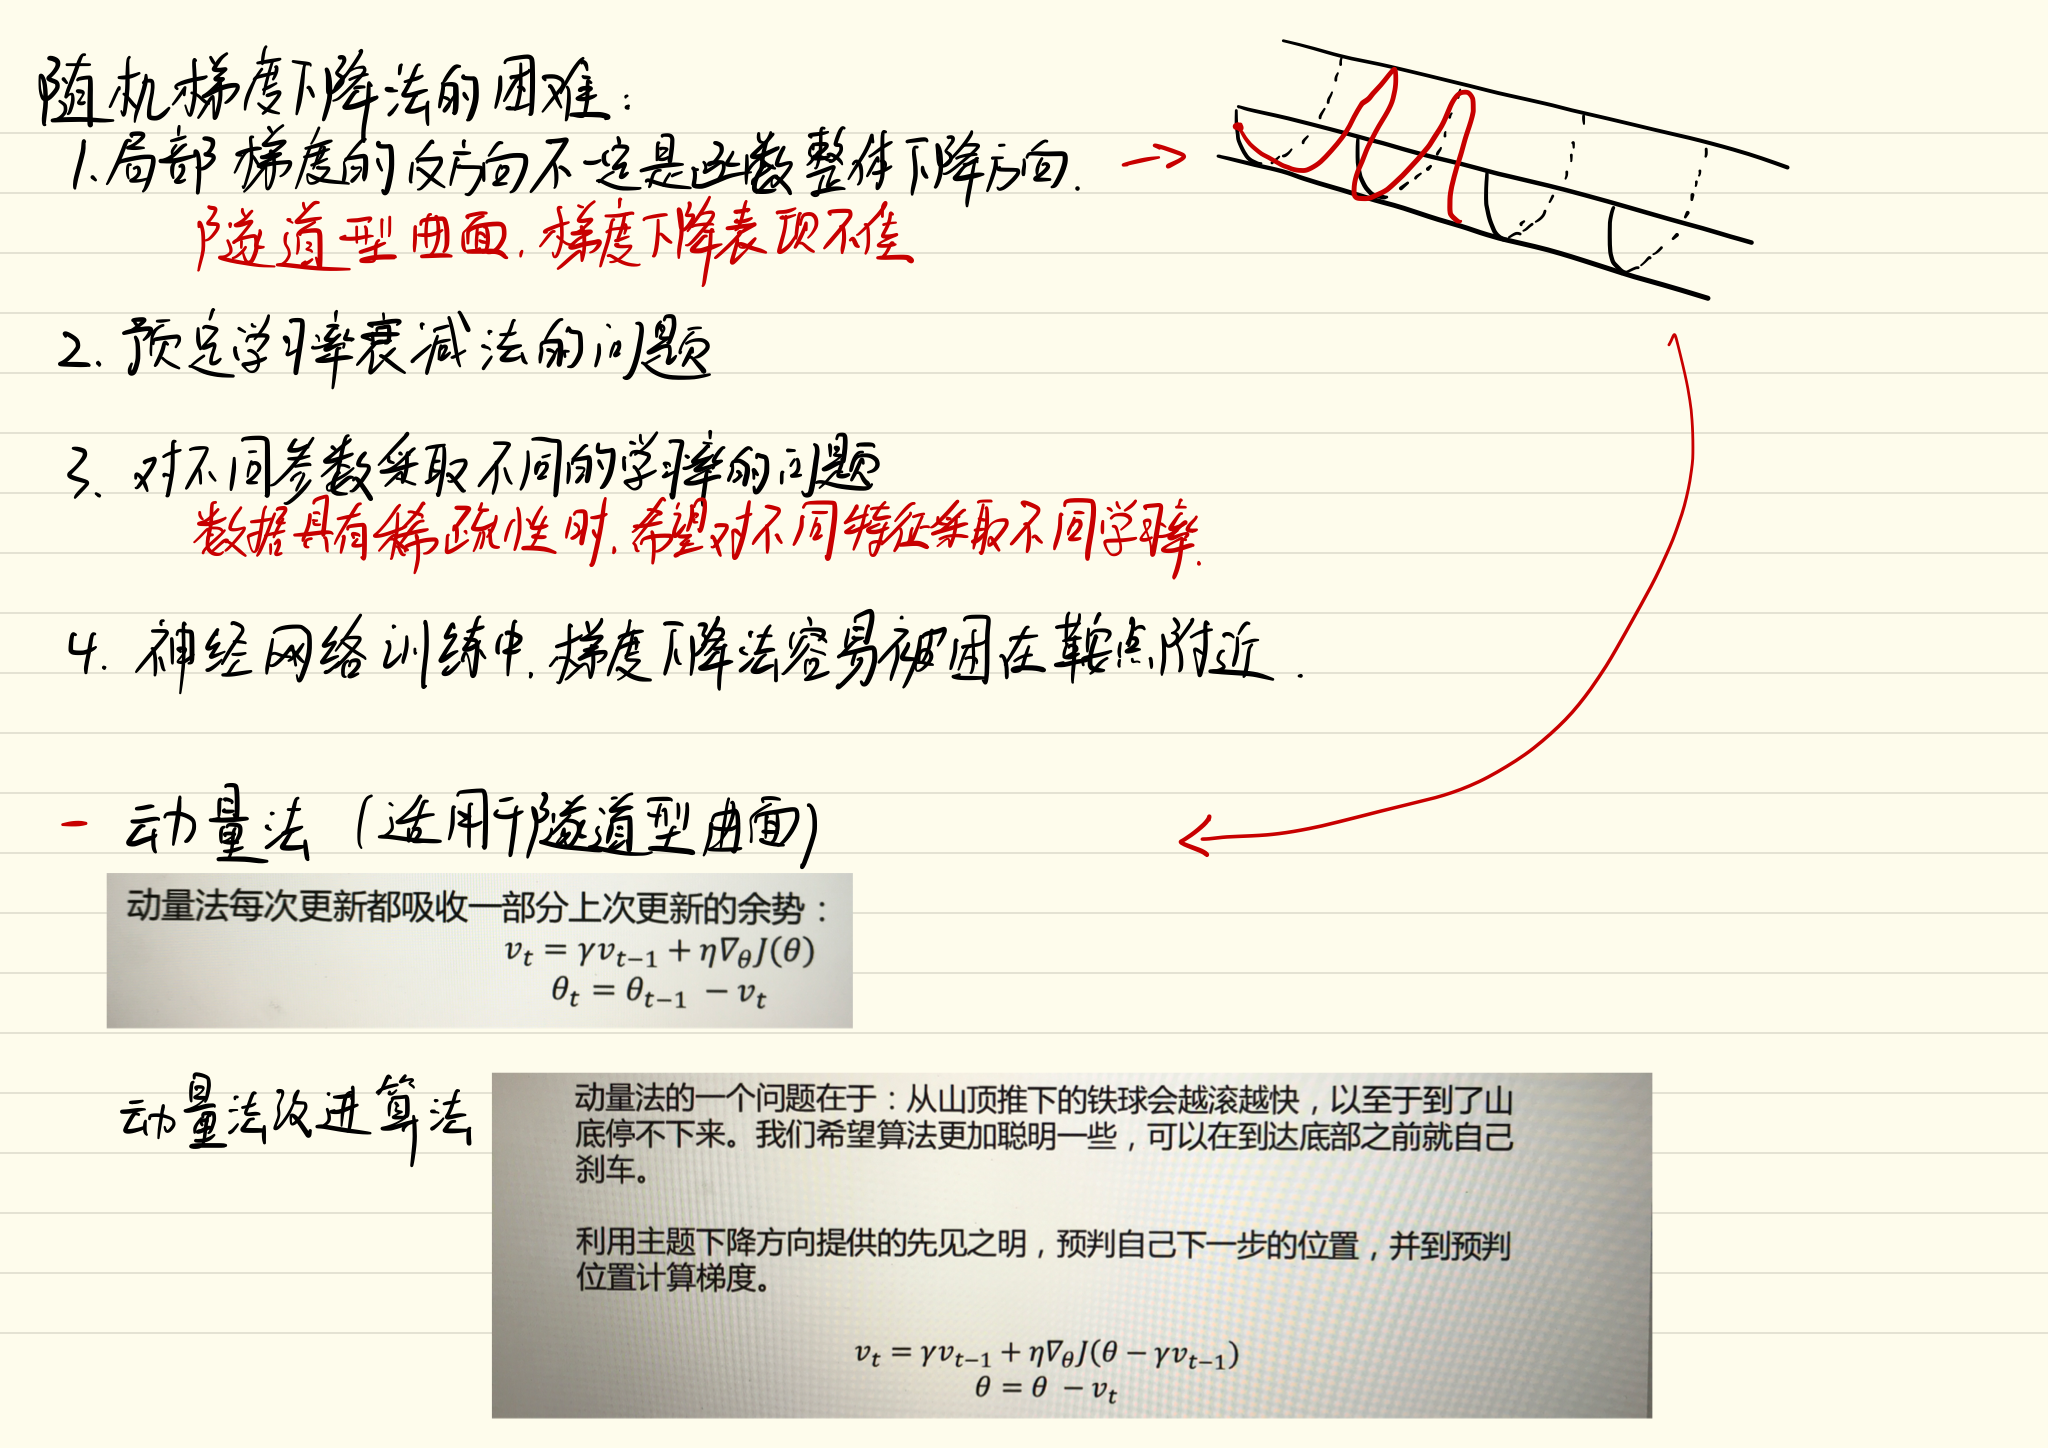 随机梯度下降法的困难:
1.局部梯度的反方向不一定是函数整体下降方向.
隧道型曲面,梯度下降表现不佳
2.预定学习率衰减法的问题
3.对不同参数采取不同的学习率的问题
数据具有稀疏性时,希望对不同特征采取不同学习率.
4.神经网络训练中,梯度下降法容易被困在鞍点附近.
- 动量法(适用于隧道型曲面)
动量法每次更新都吸收一部分上次更新的余势:
v_t = γv_{t-1} + η∇_θJ(θ)
θ_t = θ_{t-1} - v_t
动量法改进算法
动量法的一个问题在于:从山顶推下的铁球会越滚越快,以至于到了山
底停不下来。我们希望算法更加聪明一些,可以在到达底部之前就自己
刹车。
利用主题下降方向提供的先见之明,预判自己下一步的位置,并到预判
位置计算梯度。
v_t = γv_{t-1} + η∇_θJ(θ - γv_{t-1})
θ = θ - v_t